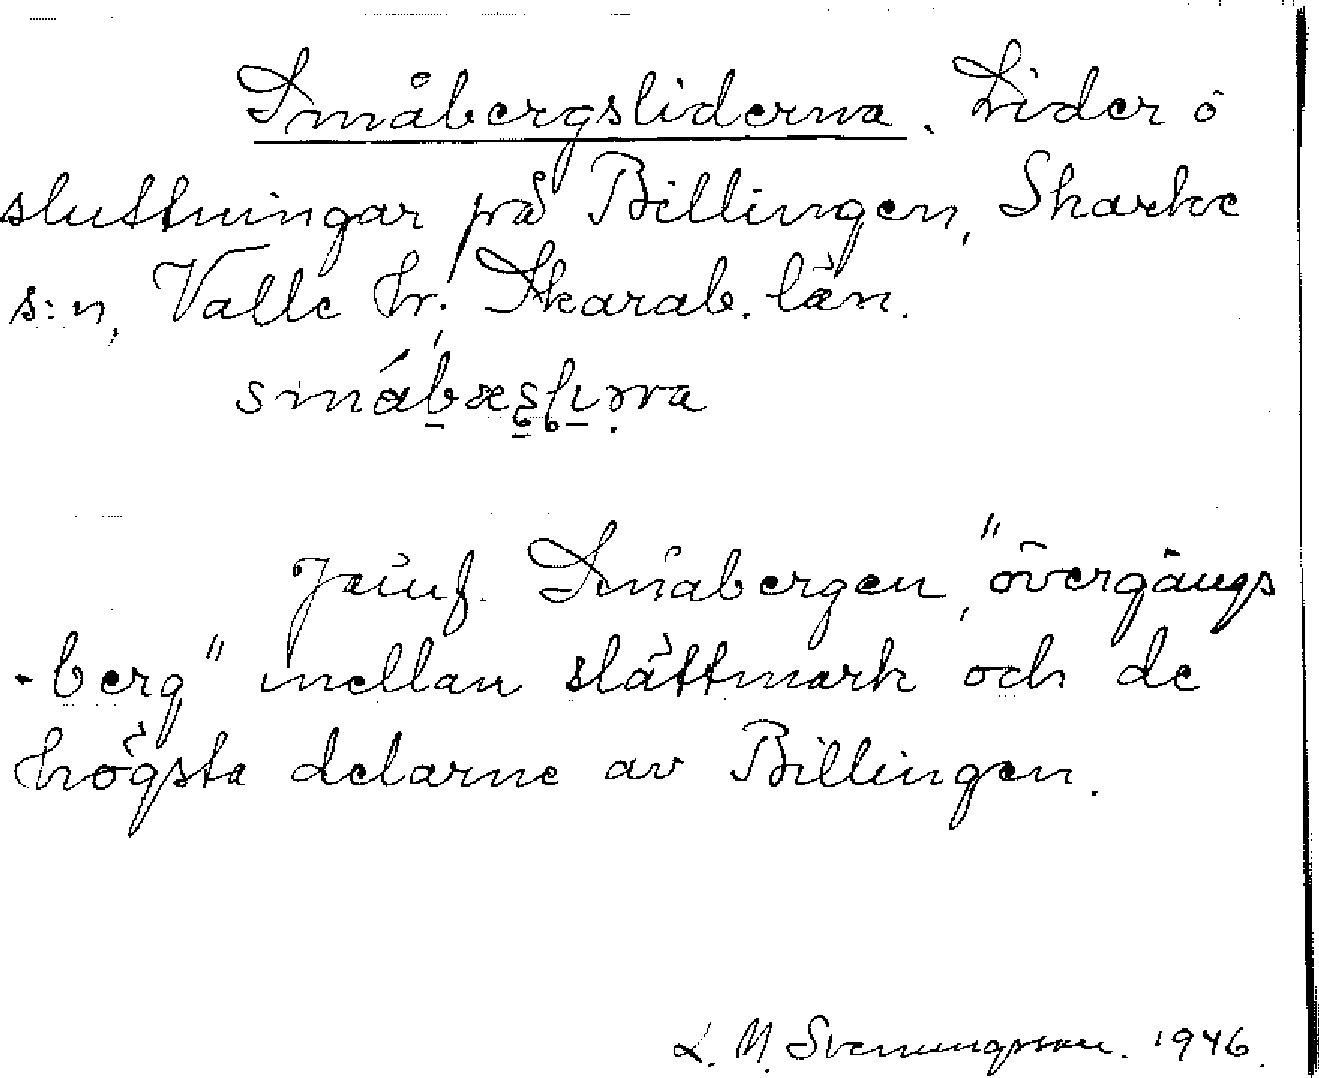 Småbergsliderna. Lider ö
sluttningar på Billingen, Skarke
s:n, Valle hr. Skarab. län.
Jämf. Småbergen, "övergångs
-berg" mellan slättmark och de
högsta delarne av Billingen.
L. M. Svenungsson. 1946.